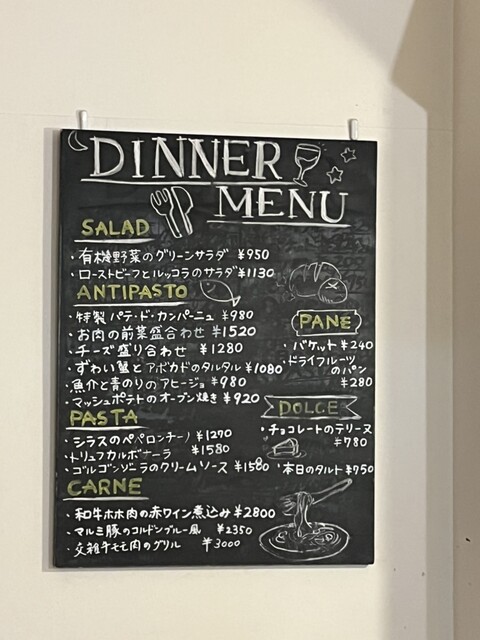 DINNER
MENU
SALAD
・有機野菜のグリーンサラダ ¥950
・ローストビーフとルッコラのサラダ ¥1130
ANTIPASTO
・特製パテ・ド・カンパーニュ ¥980
・お肉の前菜盛合わせ ¥1520
・チーズ盛り合わせ ¥1280
・ずわい蟹とアボカドのタルタル ¥1080
・魚介と青のりのアヒージョ ¥980
・マッシュポテトのオーブン焼き ¥920
PASTA
・シラスのペペロンチーノ ¥1270
・トリュフカルボナーラ ¥1580
・ゴルゴンゾーラのクリームソース ¥1580
CARNE
・和牛ホホ肉の赤ワイン煮込み ¥2800
・マルミ豚のコルドンブルー風 ¥2350
・交雑牛モモ肉のグリル ¥3000
PANE
・バケット ¥240
・ドライフルーツ
のパン
¥280
DOLCE
・チョコレートのテリーヌ
¥780
・本日のタルト ¥750